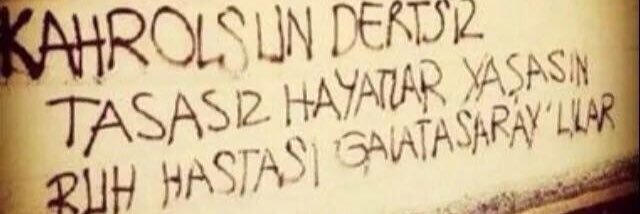 KAHROLSUN DERTSIZ
TASASIZ HAYATLAR YAŞASIN
RUH HASTASI GALATASARAY'LILAR